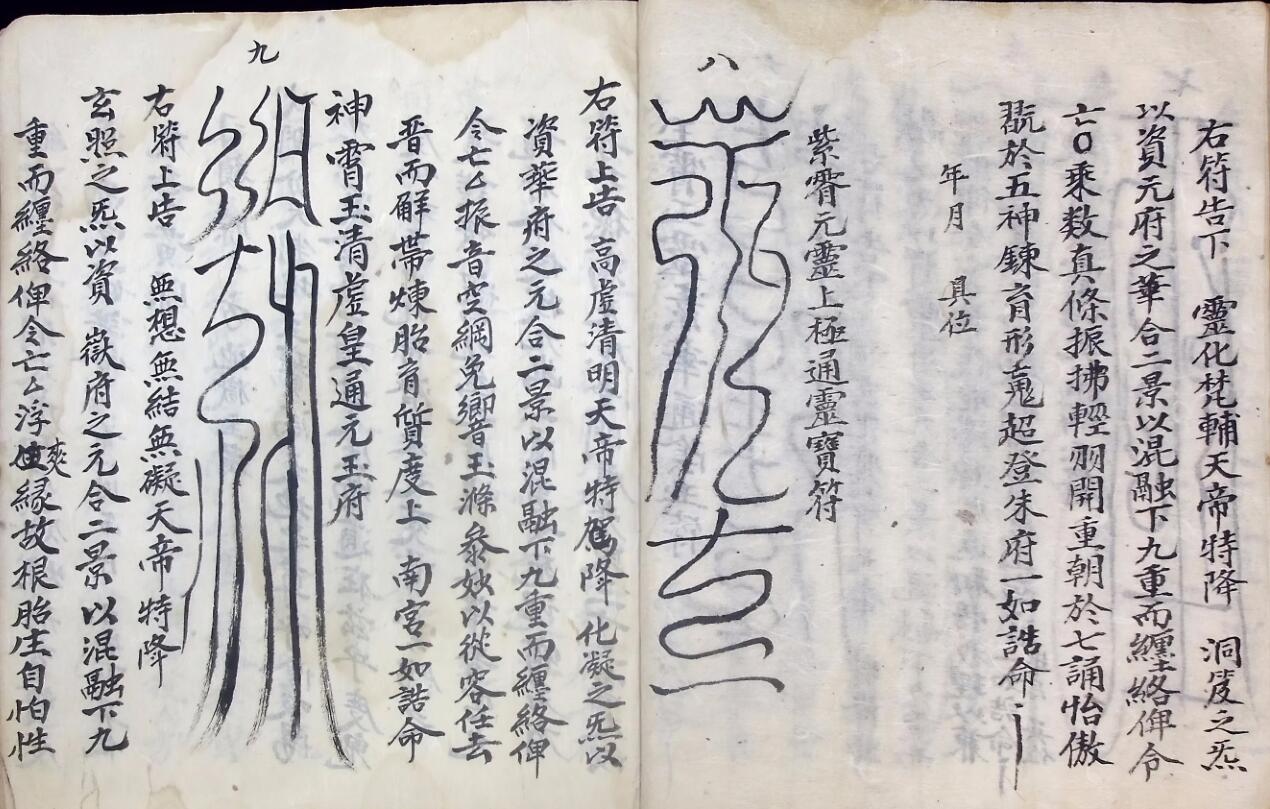 右符告下　靈化梵輔天帝特降　洞笈之炁
以資元府之華合二景以混融下九重而纏絡俾令
亡〇乘数真條振拂輕羽開重朝於七誦怡傲
翫於五神鍊育形𩲸超登朱府一如誥命
年月　具位
紫霄元靈上極通靈寶符
八
右符上告　高虛清明天帝特駕降　化凝之炁以
資華府之元合二景以混融下九重而纏絡俾
令亡厶振音空綱免響玉滌叅妙以從容任去
晋而解帶煉胎育質度上　南宮一如誥命
神霄玉清虛皇通元玉府
九
右符上告　無想無結無礙天帝　特降
玄照之炁以資　嶽府之元合二景以混融下九
重而纏絡俾令亡厶浮爽緣故根胎生自怕性